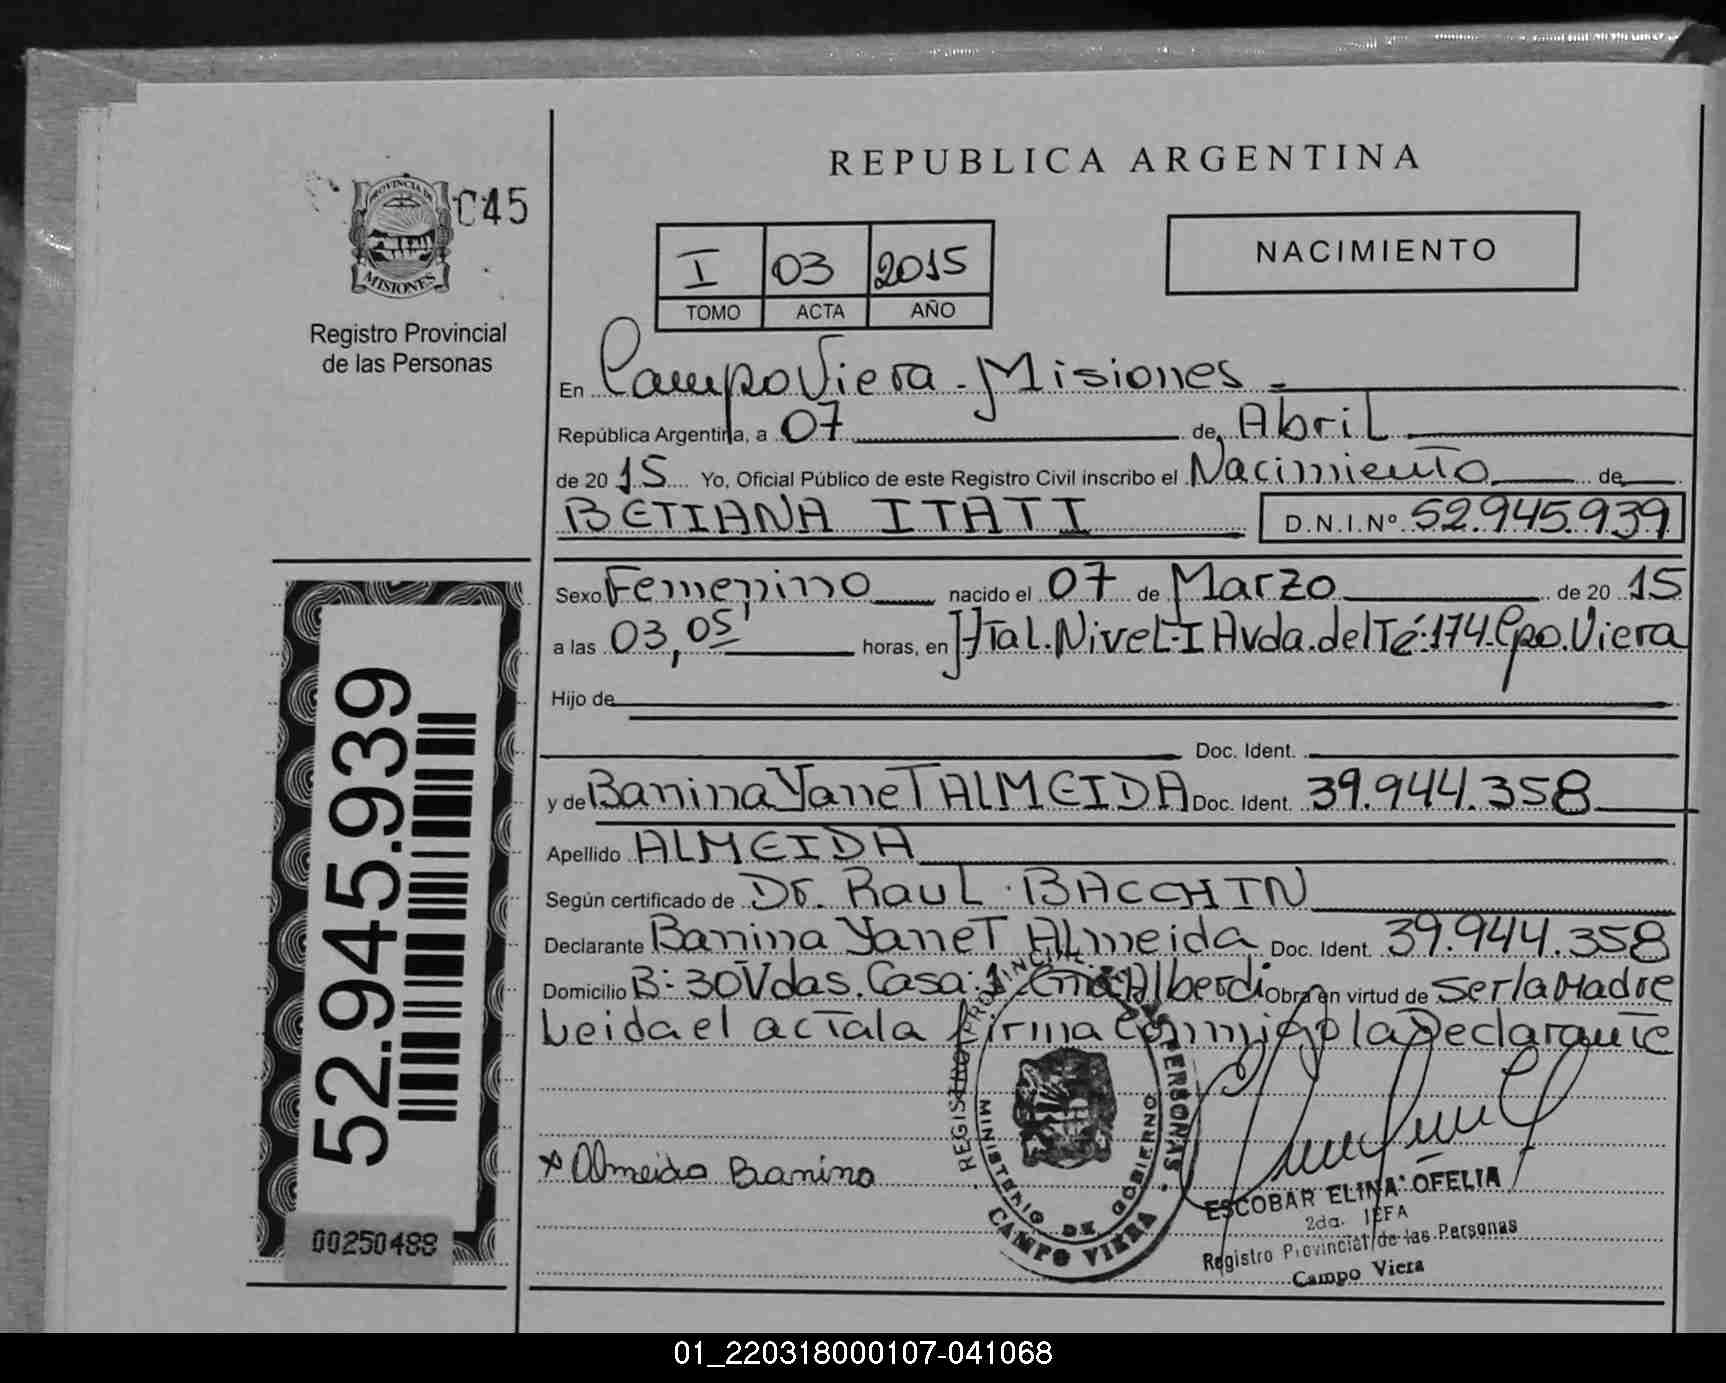 REPUBLICA ARGENTINA
PROVINCIA DE
MISIONES
C45
Registro Provincial
de las Personas
I 03 2015
TOMO ACTA AÑO
NACIMIENTO
En Campo Viera - Misiones -
República Argentina, a 07 de Abril
de 2015 Yo, Oficial Público de este Registro Civil inscribo el Nacimiento de
BETIANA ITATI D.N.I.Nº 52.945.939
Sexo Femenino nacido el 07 de Marzo de 2015
a las 03,05' horas, en Htal. Nivel-I Avda. del Té:174-Cpo. Viera
Hijo de
Doc. Ident.
y de Banina Yanet ALMEIDA Doc. Ident. 39.944.358
Apellido ALMEIDA
Según certificado de Dr. Raul BACCHIN
Declarante Banina Yanet Almeida Doc. Ident. 39.944.358
Domicilio B: 30 Vdas. Casa: 1 Alberdi Obra en virtud de ser la Madre
Leida el acta la firma conmigo la Declarante
x Almeida Banina
REGISTRO PROVINCIAL DE LAS PERSONAS
MINISTERIO DE GOBIERNO
CAMPO VIERA
ESCOBAR ELINA OFELIA
2da. JEFA
Registro Provincial de las Personas
Campo Viera
52.945.939
00250488
01_220318000107-041068